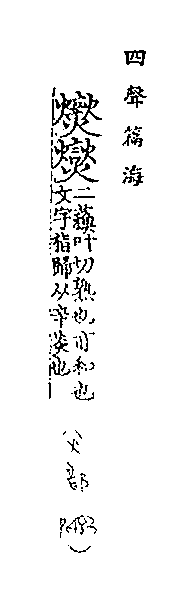 四聲篇海
二蘓叶切熟也可和也
文字指歸从辛炎也
(火部